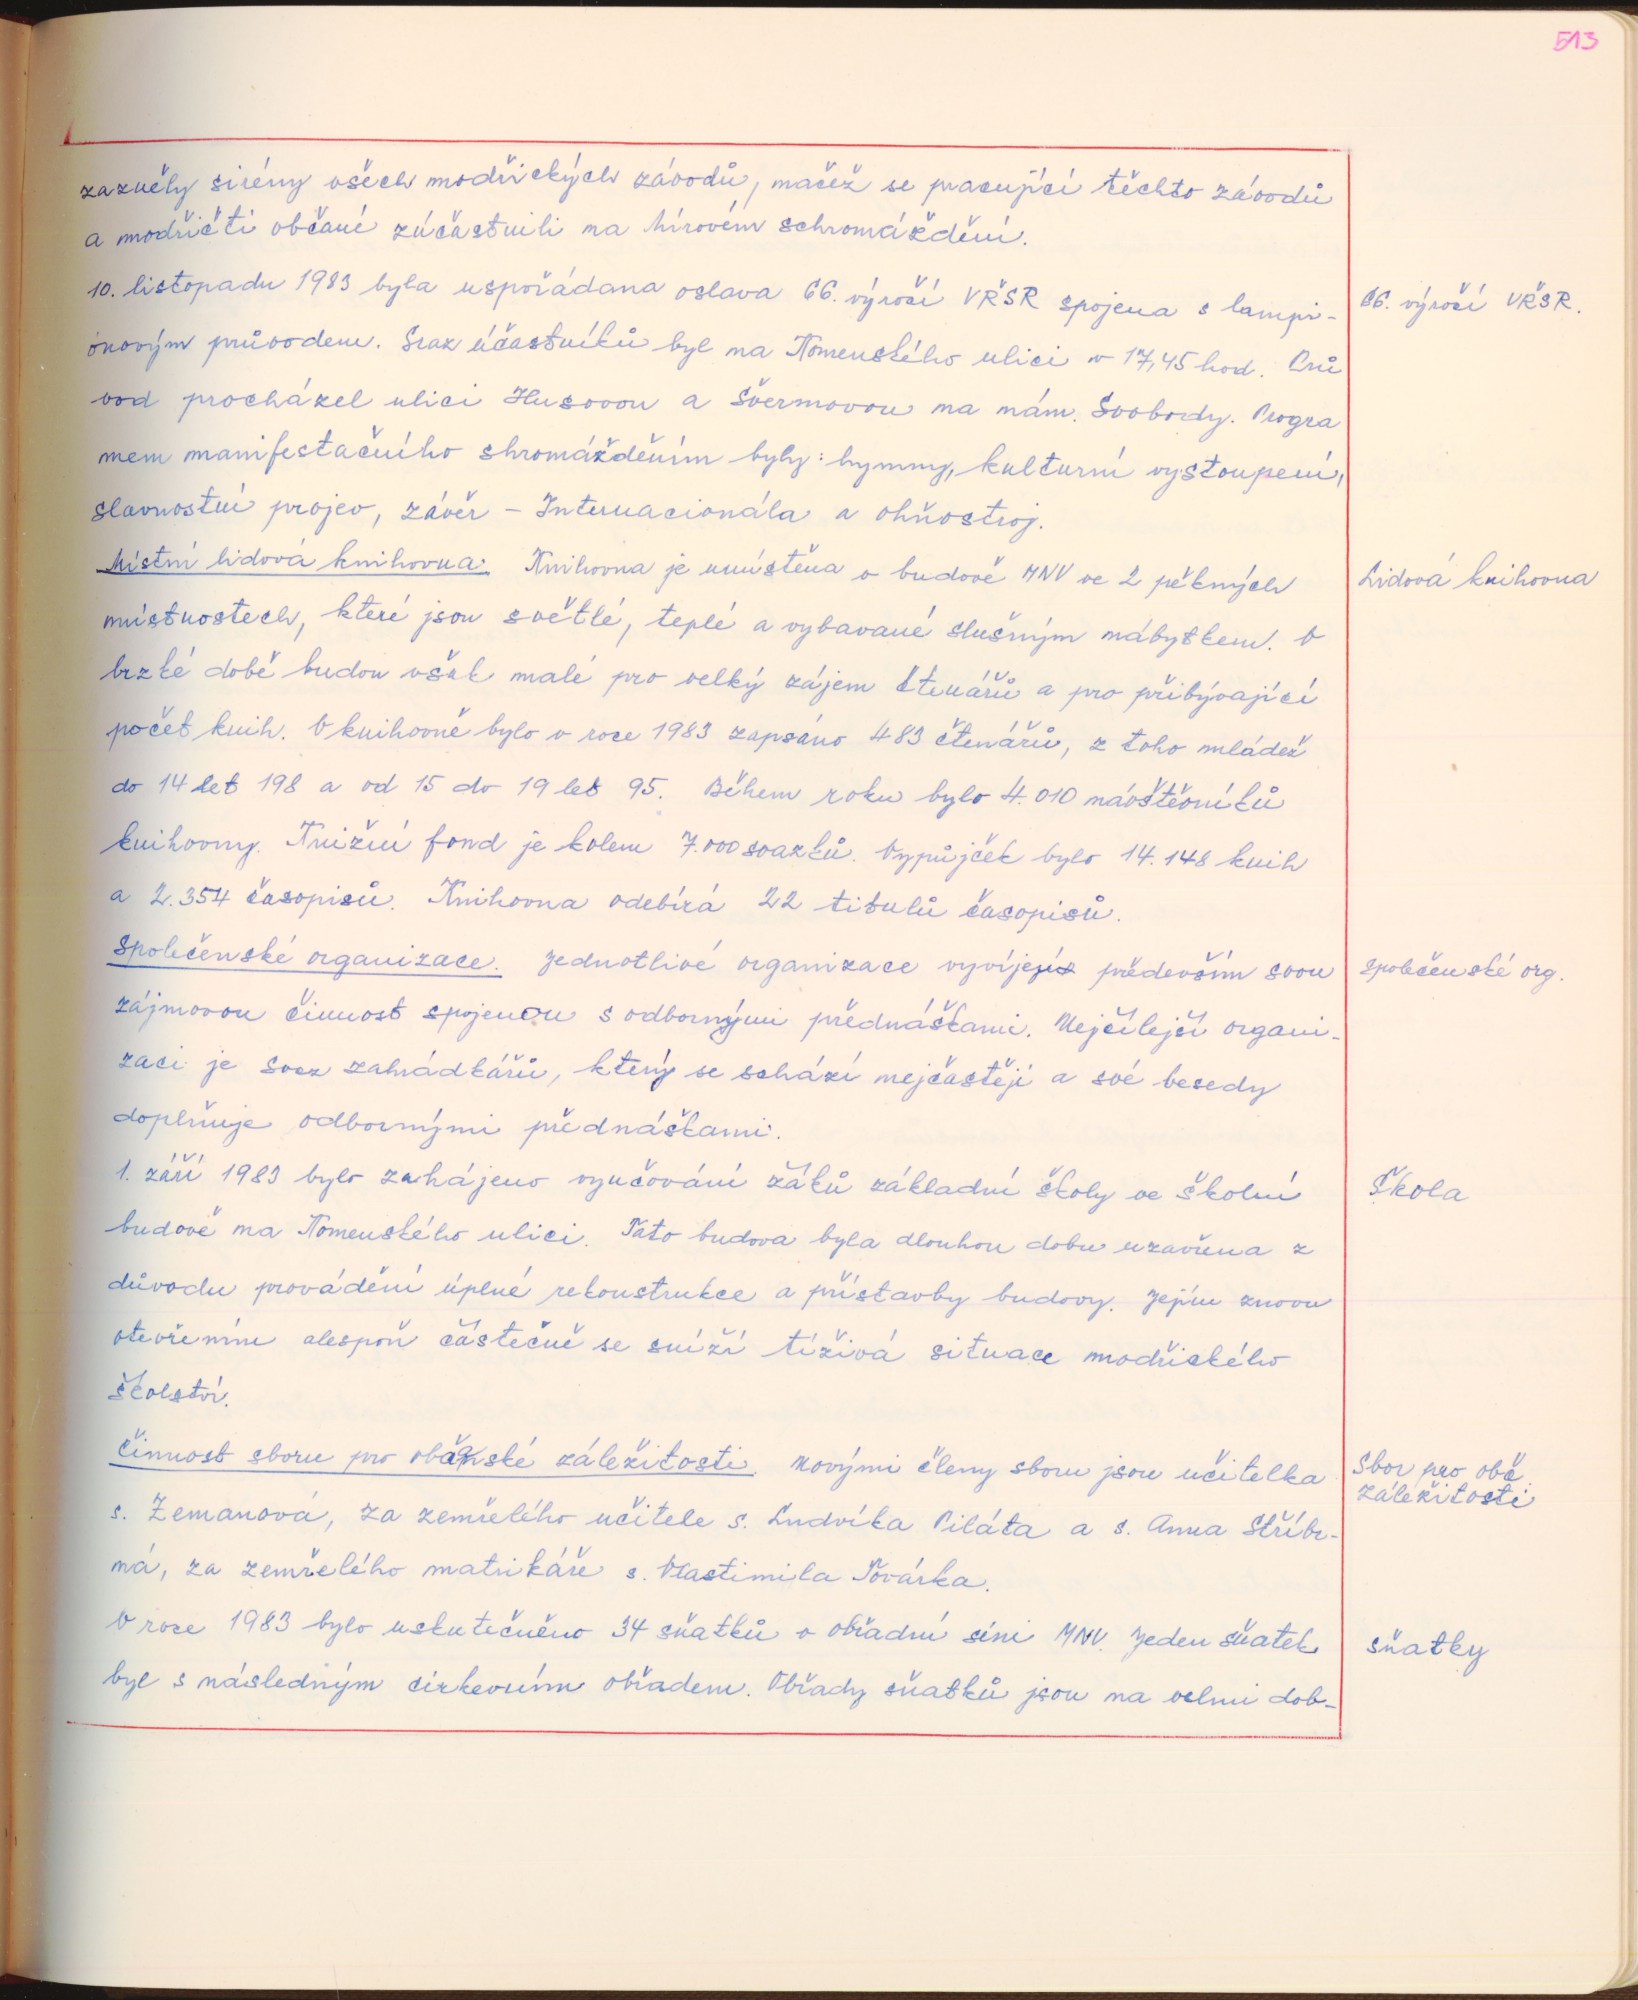 513
zazněly sirény všech modřických závodů, načež se pracující těchto závodů
a modřičtí občané zúčastnili na mírovém schromáždění.
10. listopadu 1983 byla uspořádana oslava 66. výročí VŘSR spojena s lampi-
66. výročí VŘSR.
onovým průvodem. Sraz účastníků byl na Komenského ulici v 17,45 hod. Prů
vod procházel ulici Husovou a Švermovou na nám. Svobody. Progra
mem manifestačního shromážděním byly: hymny, kulturní vystoupení,
slavnostní projev, závěr – Internacionála a ohňostroj.
Místní lidová knihovna. Knihovna je umístěna v budově MNV ve 2 pěkných
Lidová knihovna
místnostech, které jsou světlé, teplé a vybavané slušným nábytkem. V
brzké době budou však malé pro velký zájem čtenářů a pro přibývající
počet knih. V knihovně bylo v roce 1983 zapsáno 483 čtenářů, z toho mládež
do 14 let 198 a od 15 do 19 let 95. Během roku bylo 4.010 návštěvníků
knihovny. Knižní fond je kolem 7.000 svazků. Vypůjček bylo 14.148 knih
a 2.354 časopisů. Knihovna odebírá 22 titulů časopisů.
Společenské organizace. Jednotlivé organizace vyvíjejí především svou
společenské org.
zájmovou činnost spojenou s odbornými přednáškami. Nejčilejší organi-
zaci je Svaz zahrádkářů, který se schází nejčastěji a své besedy
doplňuje odbornými přednáškami.
1. září 1983 bylo zahájeno vyučování žáků základní školy ve školní
Škola
budově na Komenského ulici. Tato budova byla dlouhou dobu uzavřena z
důvodu provádění úplné rekonstrukce a přístavby budovy. Jejím znovu
otevřením alespoň částečně se sníží tíživá situace modřického
školství.
Činnost sboru pro občanské záležitosti. Novými členy sboru jsou učitelka
Sbor pro obč.
záležitosti
s. Zemanová, za zemřelého učitele s. Ludvíka Piláta a s. Anna Stříbr-
ná, za zemřelého matrikáře s. Vlastimila Továrka.
V roce 1983 bylo uskutečněno 34 sňatků v obřadní síni MNV. Jeden sňatek
sňatky
byl s následným cirkevním obřadem. Obřady sňatků jsou na velmi dob-